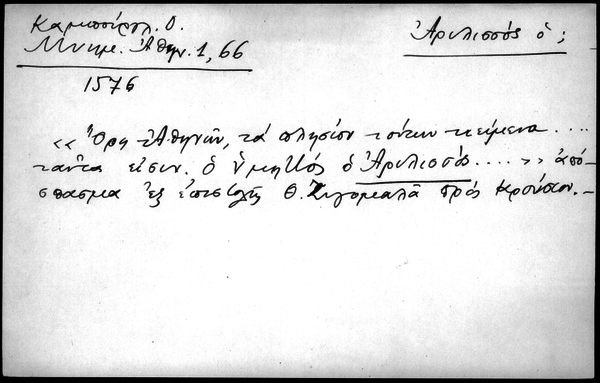 Καμπούρογλ. Δ.
Μνημ. Ἀθην. 1, 66
Ἀρυλισσός ὁ;
1576
<< Ὄρη Ἀθηνῶν, τά πλησίον τούτων κείμενα ....
ταῦτα εἰσιν. ὁ ὑμηττός ὁ Ἀρυλισσός .... >> ἀπό-
σπασμα ἐξ ἐπιστολῆς Θ. Ζυγομαλᾶ πρός Κρούσιον. -